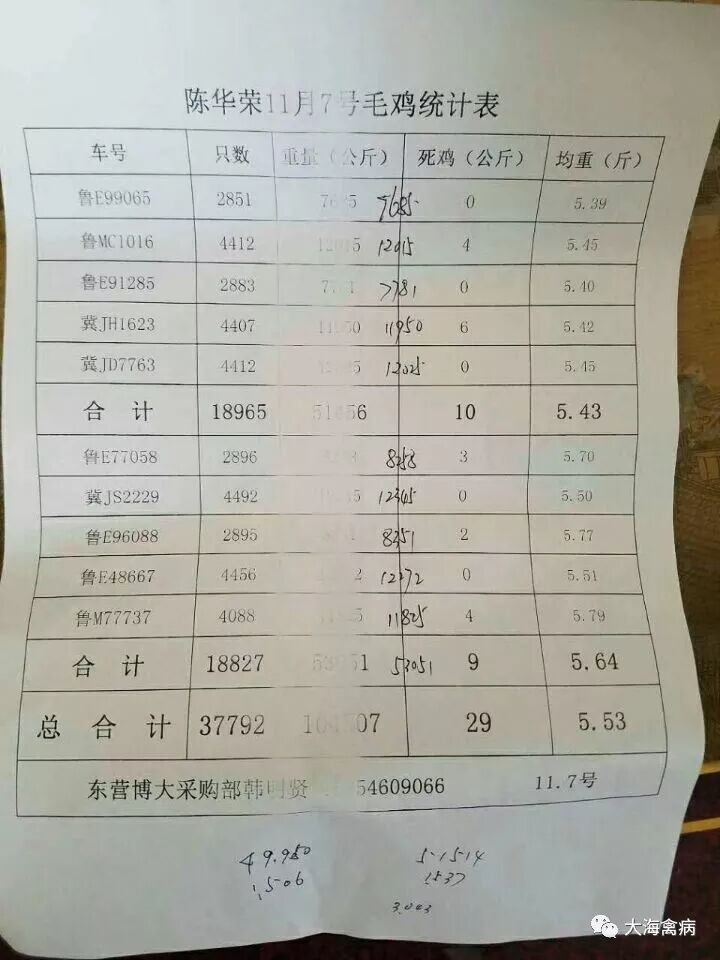 陈华荣11月7号毛鸡统计表
车号 只数 重量（公斤） 死鸡（公斤） 均重（斤）
鲁E99065 2851 7685 0 5.39
鲁MC1016 4412 12015 4 5.45
鲁E91285 2883 7781 0 5.40
冀JH1623 4407 11950 6 5.42
冀JD7763 4412 12025 0 5.45
合 计 18965 51456 10 5.43
鲁E77058 2896 8258 3 5.70
冀JS2229 4492 12345 0 5.50
鲁E96088 2895 8351 2 5.77
鲁E48667 4456 12272 0 5.51
鲁M77737 4088 11825 4 5.79
合 计 18827 53051 53051 9 5.64
总 合 计 37792 29 5.53
东营博大采购部韩明贤 54609066 11.7号
49.950 5-1514
1.506 1537
3.043
大海禽病